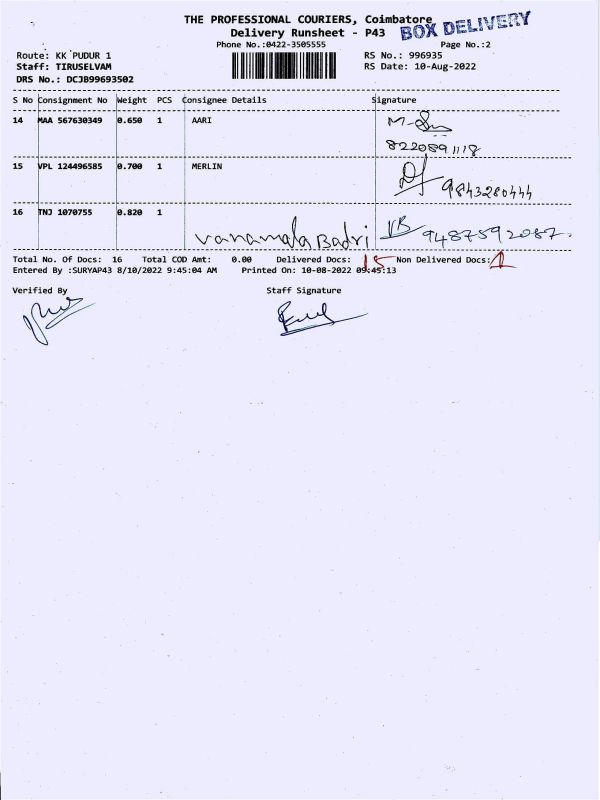 THE PROFESSIONAL COURIERS, Coimbatore
Delivery Runsheet - P43
BOX DELIVERY
Phone No.:0422-3505555
Page No.:2
Route: KK PUDUR 1
RS No.: 996935
Staff: TIRUSELVAM
RS Date: 10-Aug-2022
DRS No.: DCJB99693502
S No Consignment No Weight PCS Consignee Details Signature
14 MAA 567630349 0.650 1 AARI
8220891118
15 VPL 124496585 0.700 1 MERLIN
9843280444
16 TNJ 1070755 0.820 1
vanamala Badri VB 9487592087.
Total No. Of Docs: 16 Total COD Amt: 0.00 Delivered Docs: 15 Non Delivered Docs: 1
Entered By :SURYAP43 8/10/2022 9:45:04 AM Printed On: 10-08-2022 09:45:13
Verified By Staff Signature